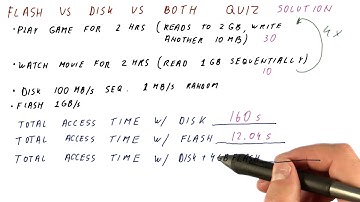 FLASH VS DISK VS BOTH QUIZ SOLUTION
• PLAY GAME FOR 2 HRS (READS TO 2 GB, WRITE
ANOTHER 10 MB) 30
4x
• WATCH MOVIE FOR 2 HRS (READ 1GB SEQUENTIALLY)
10
• DISK 100 MB/S SEQ. 1 MB/S RANDOM
• FLASH 1GB/S
TOTAL ACCESS TIME W/ DISK 160 s
TOTAL ACCESS TIME W/ FLASH 12.04 s
TOTAL ACCESS TIME W/ DISK + 4GB FLASH